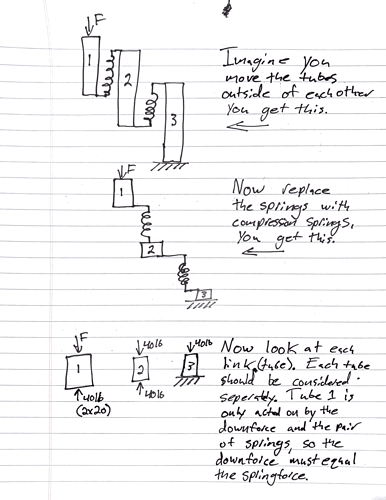 F
1
2
3
Imagine you
move the tubes
outside of each other
You get this.
F
1
2
3
Now replace
the springs with
compression springs,
You get this.
F
1
40lb
(2x20)
40lb
2
40lb
40lb
3
Now look at each
link (tube). Each tube
should be considered
seperably. Tube 1 is
only acted on by the
downforce and the pair
of springs, so the
downforce must equal
the springforce.